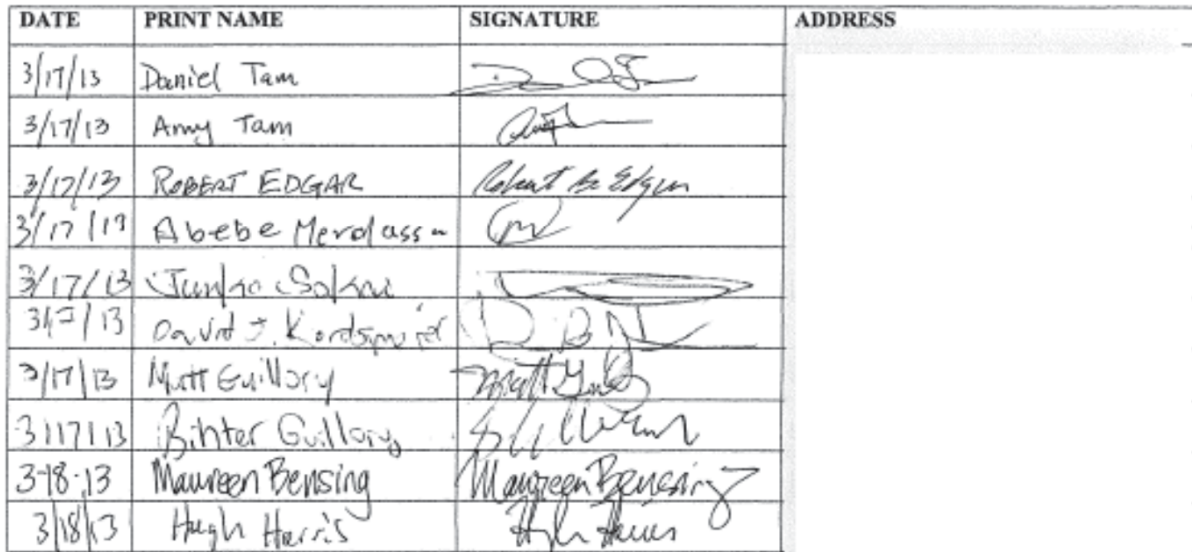 DATE PRINT NAME SIGNATURE ADDRESS
3/17/13 Daniel Tam
3/17/13 Amy Tam
3/17/13 ROBERT EDGAR Robert B. Edgar
3/17/13 Abebe
3/17/13 Junko
3/17/13 David J.
3/17/13 Matt Guillory Matt
3/17/13 Bihter Guillory
3-18-13 Maureen Bensing Maureen Bensing
3/18/13 Hugh Harris Hugh Harris